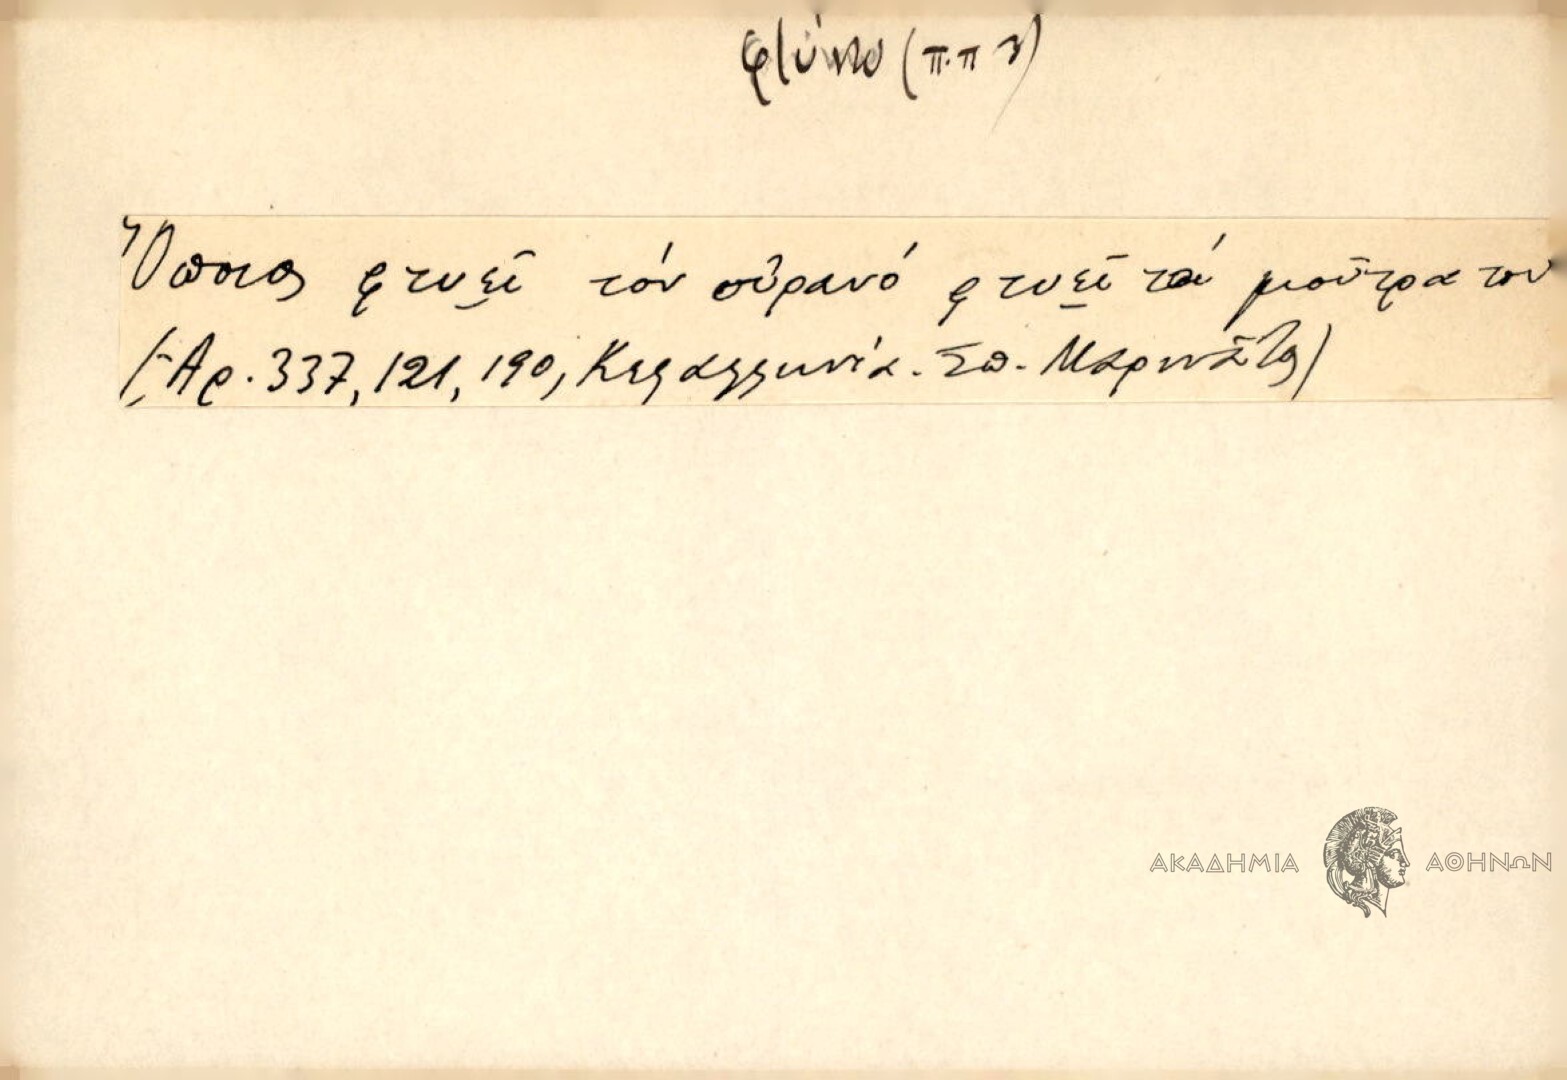 φτύνω (π.π 2)
Ὅποιος φτυεῖ τόν οὐρανό φτυεῖ τά μιοῦτρα του
(Ἀρ. 337, 121, 190, Κεφαλληνία. Σπ. Μαρινᾶτος)
ΑΚΑΔΗΜΙΑ ΑΘΗΝΩΝ